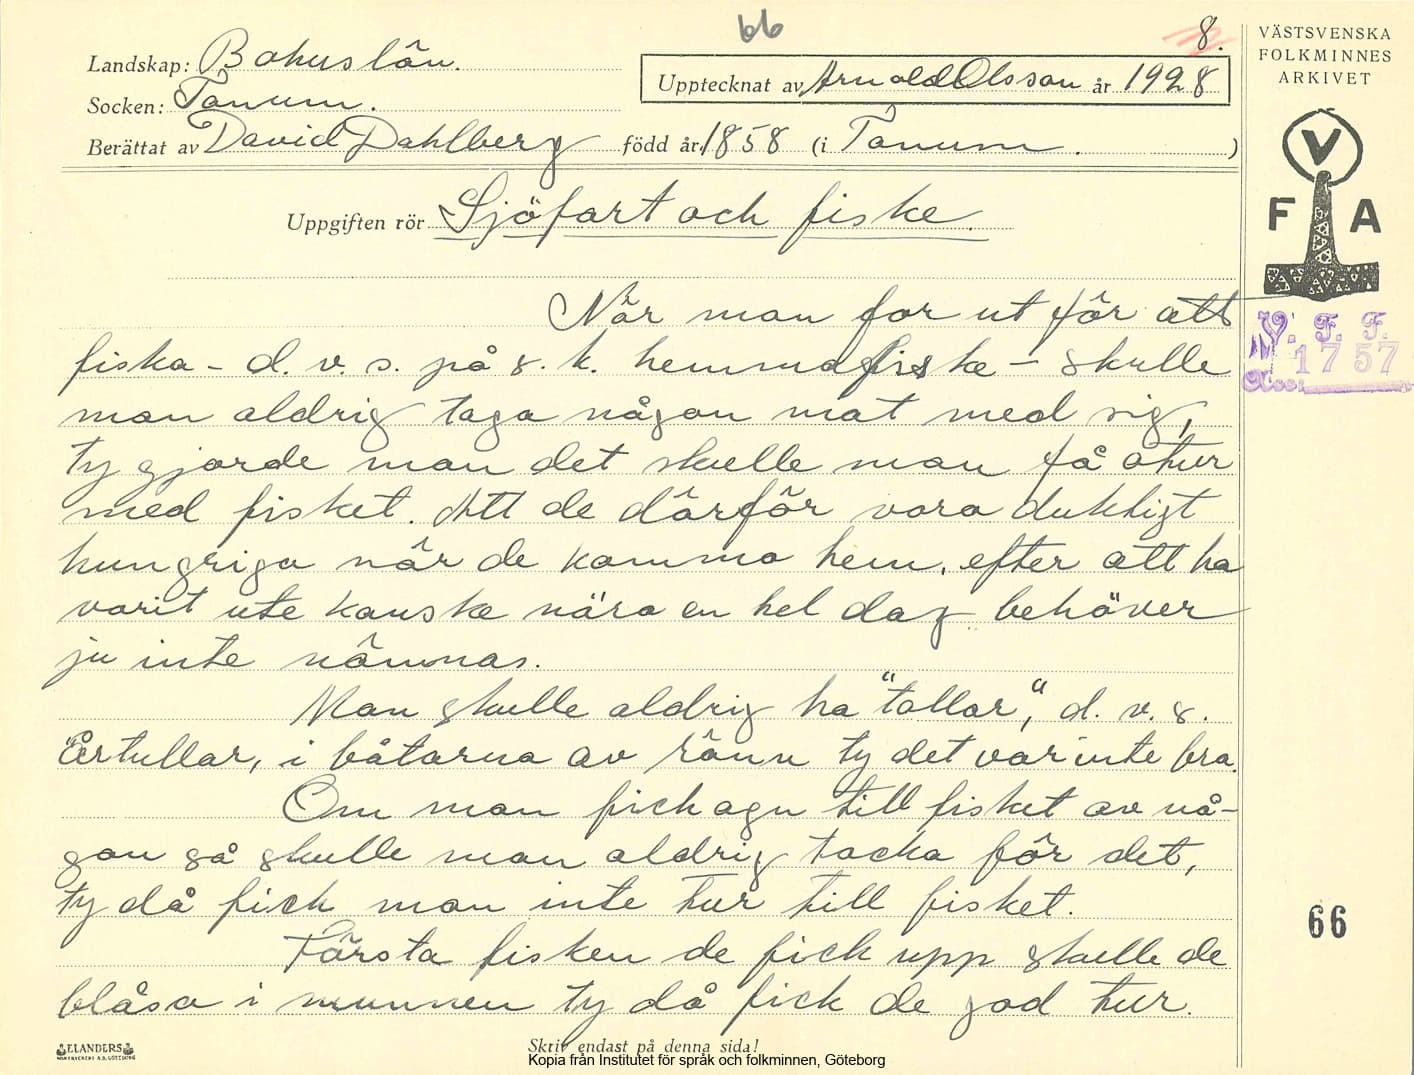 66
8.
Landskap: Bohuslän.
Upptecknat av Arnold Olsson år 1928
Socken: Tanum.
Berättat av David Dahlberg född år 1858 (i Tanum.)
Uppgiften rör Sjöfart och fiske.
När man for ut för att
fiska - d. v. s. på s. k. hemmafiske - skulle
man aldrig taga någon mat med sig,
ty gjorde man det skulle man få otur
med fisket. Att de därför voro duktigt
hungriga när de kommo hem, efter att ha
varit ute kanske nära en hel dag behöver
ju inte nämnas.
Man skulle aldrig ha "tollar", d. v. s.
årtullar, i båtarna av rönn ty det var inte bra.
Om man fick agn till fisket av nå-
gon så skulle man aldrig tacka för det,
ty då fick man inte tur till fisket.
Första fisken de fick upp skulle de
blåsa i munnen ty då fick de god tur.
VÄSTSVENSKA
FOLKMINNES
ARKIVET
V
F A
V. F. F.
1757
66
ELANDERS
Skriv endast på denna sida!
Kopia från Institutet för språk och folkminnen, Göteborg